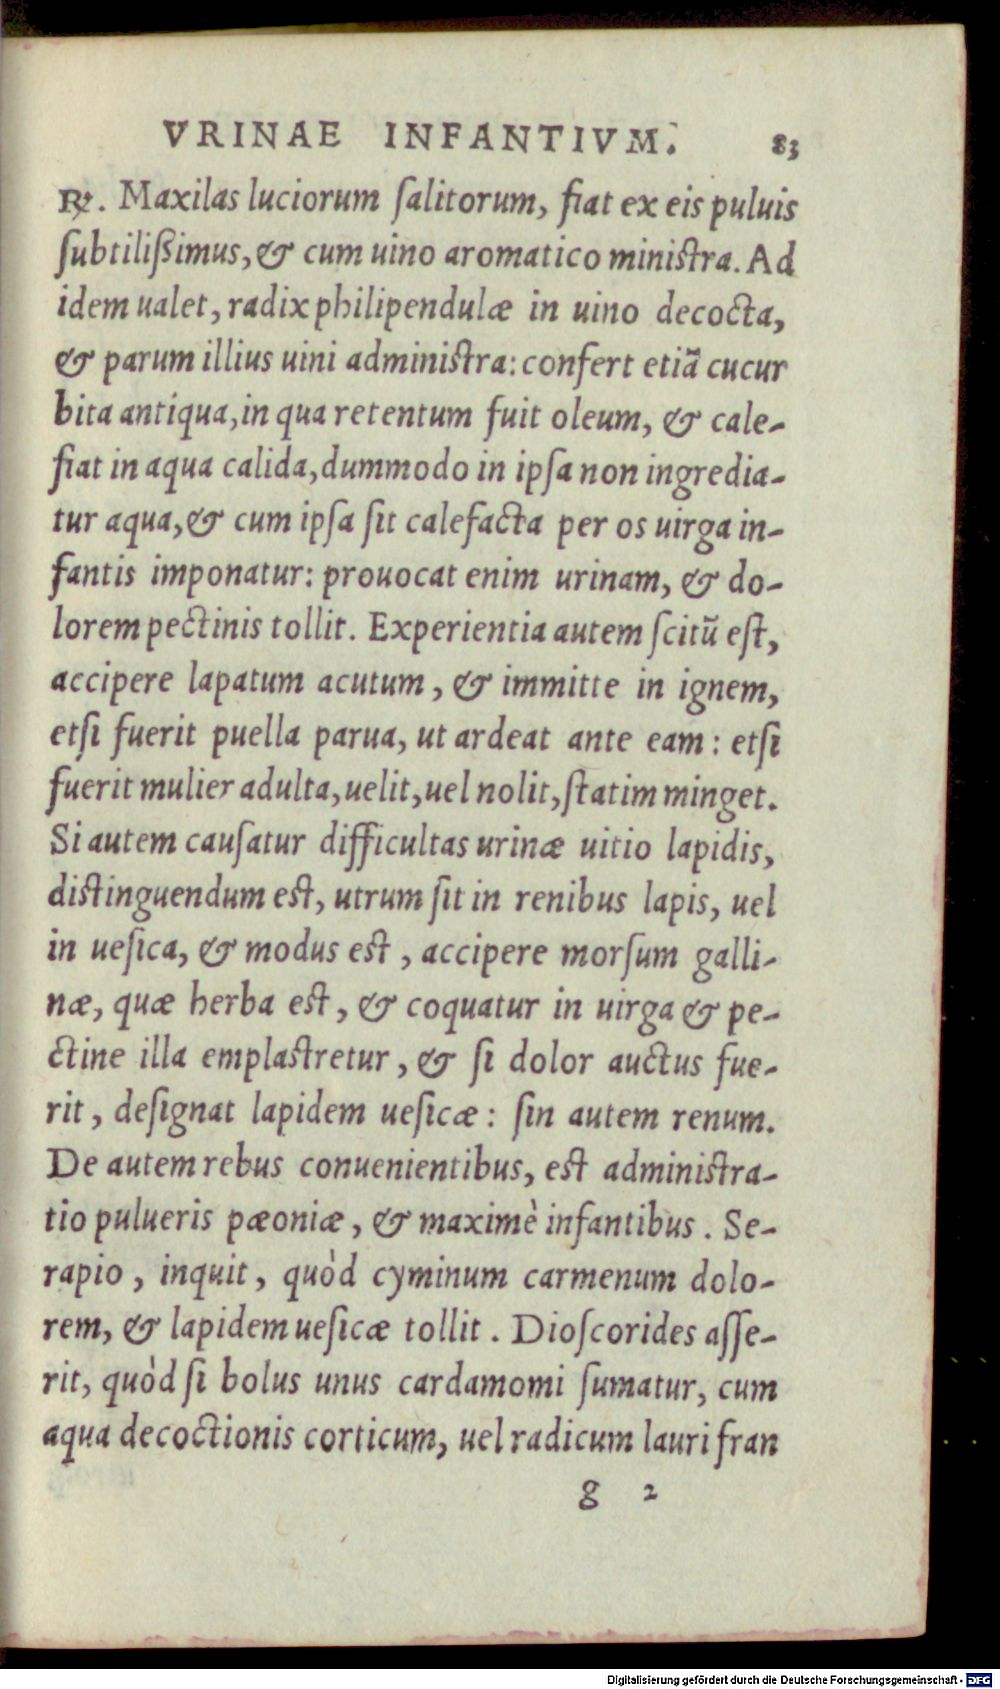 VRINAE INFANTIVM. 83
℞. Maxilas luciorum ſalitorum, fiat ex eis puluis
ſubtilißimus, & cum uino aromatico miniſtra. Ad
idem ualet, radix philipendulæ in uino decocta,
& parum illius uini adminiſtra: confert etiã cucur
bita antiqua, in qua retentum fuit oleum, & cale-
fiat in aqua calida, dummodo in ipſa non ingredia-
tur aqua, & cum ipſa ſit calefacta per os uirga in-
fantis imponatur: prouocat enim urinam, & do-
lorem pectinis tollit. Experientia autem ſcitũ eſt,
accipere lapatum acutum, & immitte in ignem,
etſi fuerit puella parua, ut ardeat ante eam: etſi
fuerit mulier adulta, uelit, uel nolit, ſtatim minget.
Si autem cauſatur difficultas urinæ uitio lapidis,
diſtinguendum eſt, utrum ſit in renibus lapis, uel
in ueſica, & modus eſt, accipere morſum galli-
næ, quæ herba eſt, & coquatur in uirga & pe-
ctine illa emplaſtretur, & ſi dolor auctus fue-
rit, deſignat lapidem ueſicæ: ſin autem renum.
De autem rebus conuenientibus, eſt adminiſtra-
tio pulueris pæoniæ, & maximè infantibus. Se-
rapio, inquit, quòd cyminum carmenum dolo-
rem, & lapidem ueſicæ tollit. Dioſcorides aſſe-
rit, quòd ſi bolus unus cardamomi ſumatur, cum
aqua decoctionis corticum, uel radicum lauri fran
g 2
Digitalisierung gefördert durch die Deutsche Forschungsgemeinschaft - DFG